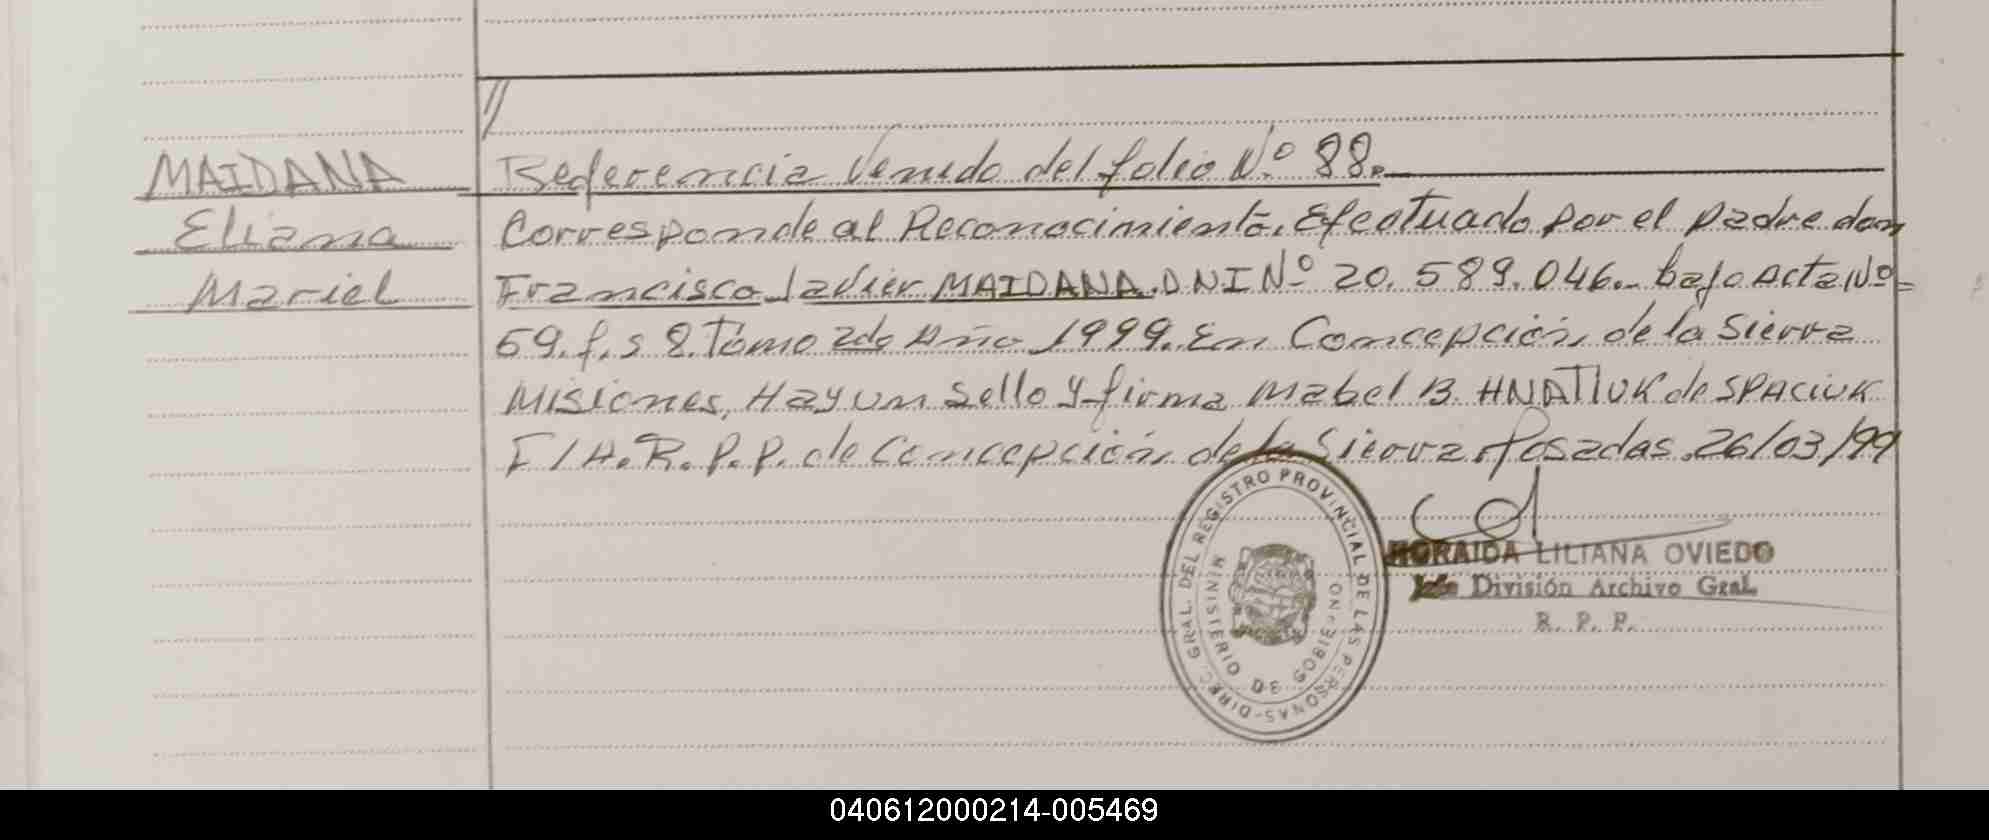 //
MAIDANA
Eliana
Mariel
Referencia Venido del folio Nº 88.
Corresponde al Reconocimiento. Efectuado por el padre don
Francisco Javier MAIDANA. DNI Nº 20.589.046.- bajo Acta Nº
59. f. s 8. Tomo 2do Año 1999. En Concepción de la Sierra
Misiones, Hay un sello y firma Mabel B. HNATIUK de SPACIUK
F/A.R.P.P. de Concepción de la Sierra. Posadas. 26/03/99
DIREC. GRAL. DEL REGISTRO PROVINCIAL DE LAS PERSONAS-
MINISTERIO DE GOBIERNO
LILIANA OVIEDO
Jefe División Archivo Gral.
R. P. P.
040612000214-005469